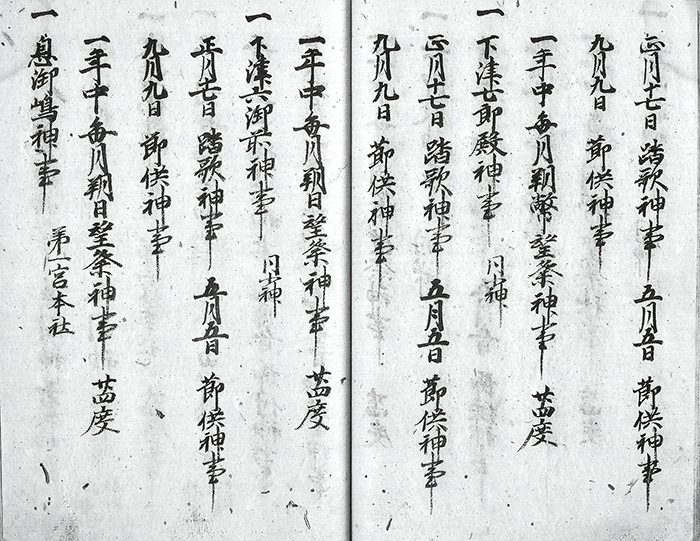 正月十七日 踏歌神事 五月五日 節供神事
九月九日 節供神事
一年中毎月朔幣望祭神事 廿四度
一 下津七郎殿神事 同神
正月十七日 踏歌神事 五月五日 節供神事
九月九日 節供神事
一年中毎月朔日望祭神事 廿四度
一 下津六御前神事 同神
正月十七日 踏歌神事 五月五日 節供神事
九月九日 節供神事
一年中毎月朔日望祭神事 廿四度
一 息御嶋神事 第一宮本社